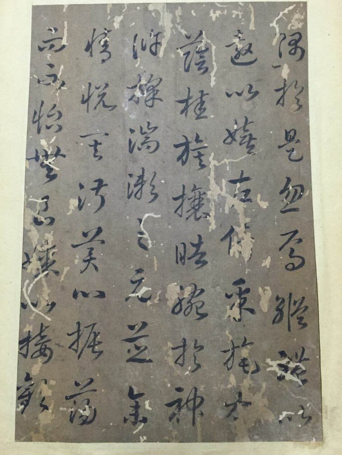 隅於是忽焉縱體以
遨以嬉左倚采旄右
蔭桂旗攘皓腕於神
滸採湍瀨之元芝余
情悅其淑美心振蕩
而不怡無良媒以接歡